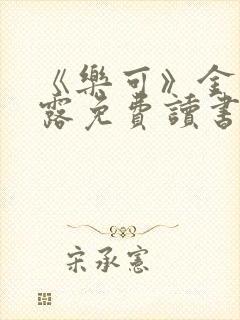 《樂可》金
露免費讀書
宋承憲